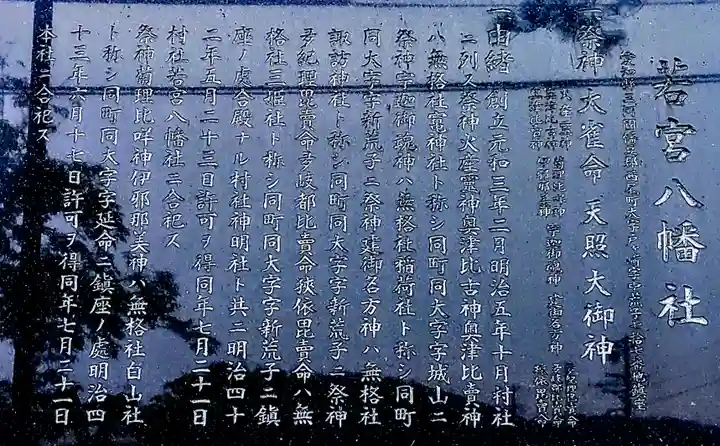 若宮八幡社
一祭神 大雀命 天照大御神
一由緒 創立元和三年二月明治五年十月村社
ニ列ス祭神火産霊神奥津比古神奥津比賣神
ハ無格社竃神社ト称シ同町同大字字城山ニ
祭神宇迦御魂神ハ無格社稲荷社ト称シ同町
同大字字新荒子ニ祭神建御名方神ハ無格社
諏訪神社ト称シ同町同大字字新荒子ニ祭神
多紀理毘賣命多岐都比賣命狭依毘賣命ハ無
格社三姫社ト称シ同町同大字字新荒子ニ鎮
座ノ處合殿ナル村社神明社ト共ニ明治四十
二年五月二十三日許可ヲ得同年七月二十一日
村社若宮八幡社ニ合祀ス
祭神菊理比咩神伊邪那美神ハ無格社白山社
ト称シ同町同大字字延命ニ鎮座ノ處明治四
十三年六月十七日許可ヲ得同年七月二十一日
本社ニ合祀ス